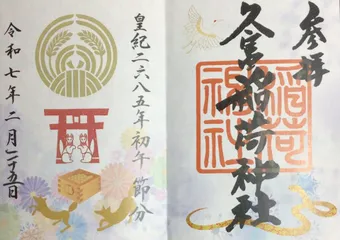 参拝
久富稲荷神社
稲荷
神社
皇紀二六八五年 初午 節分
令和七年二月二十五日